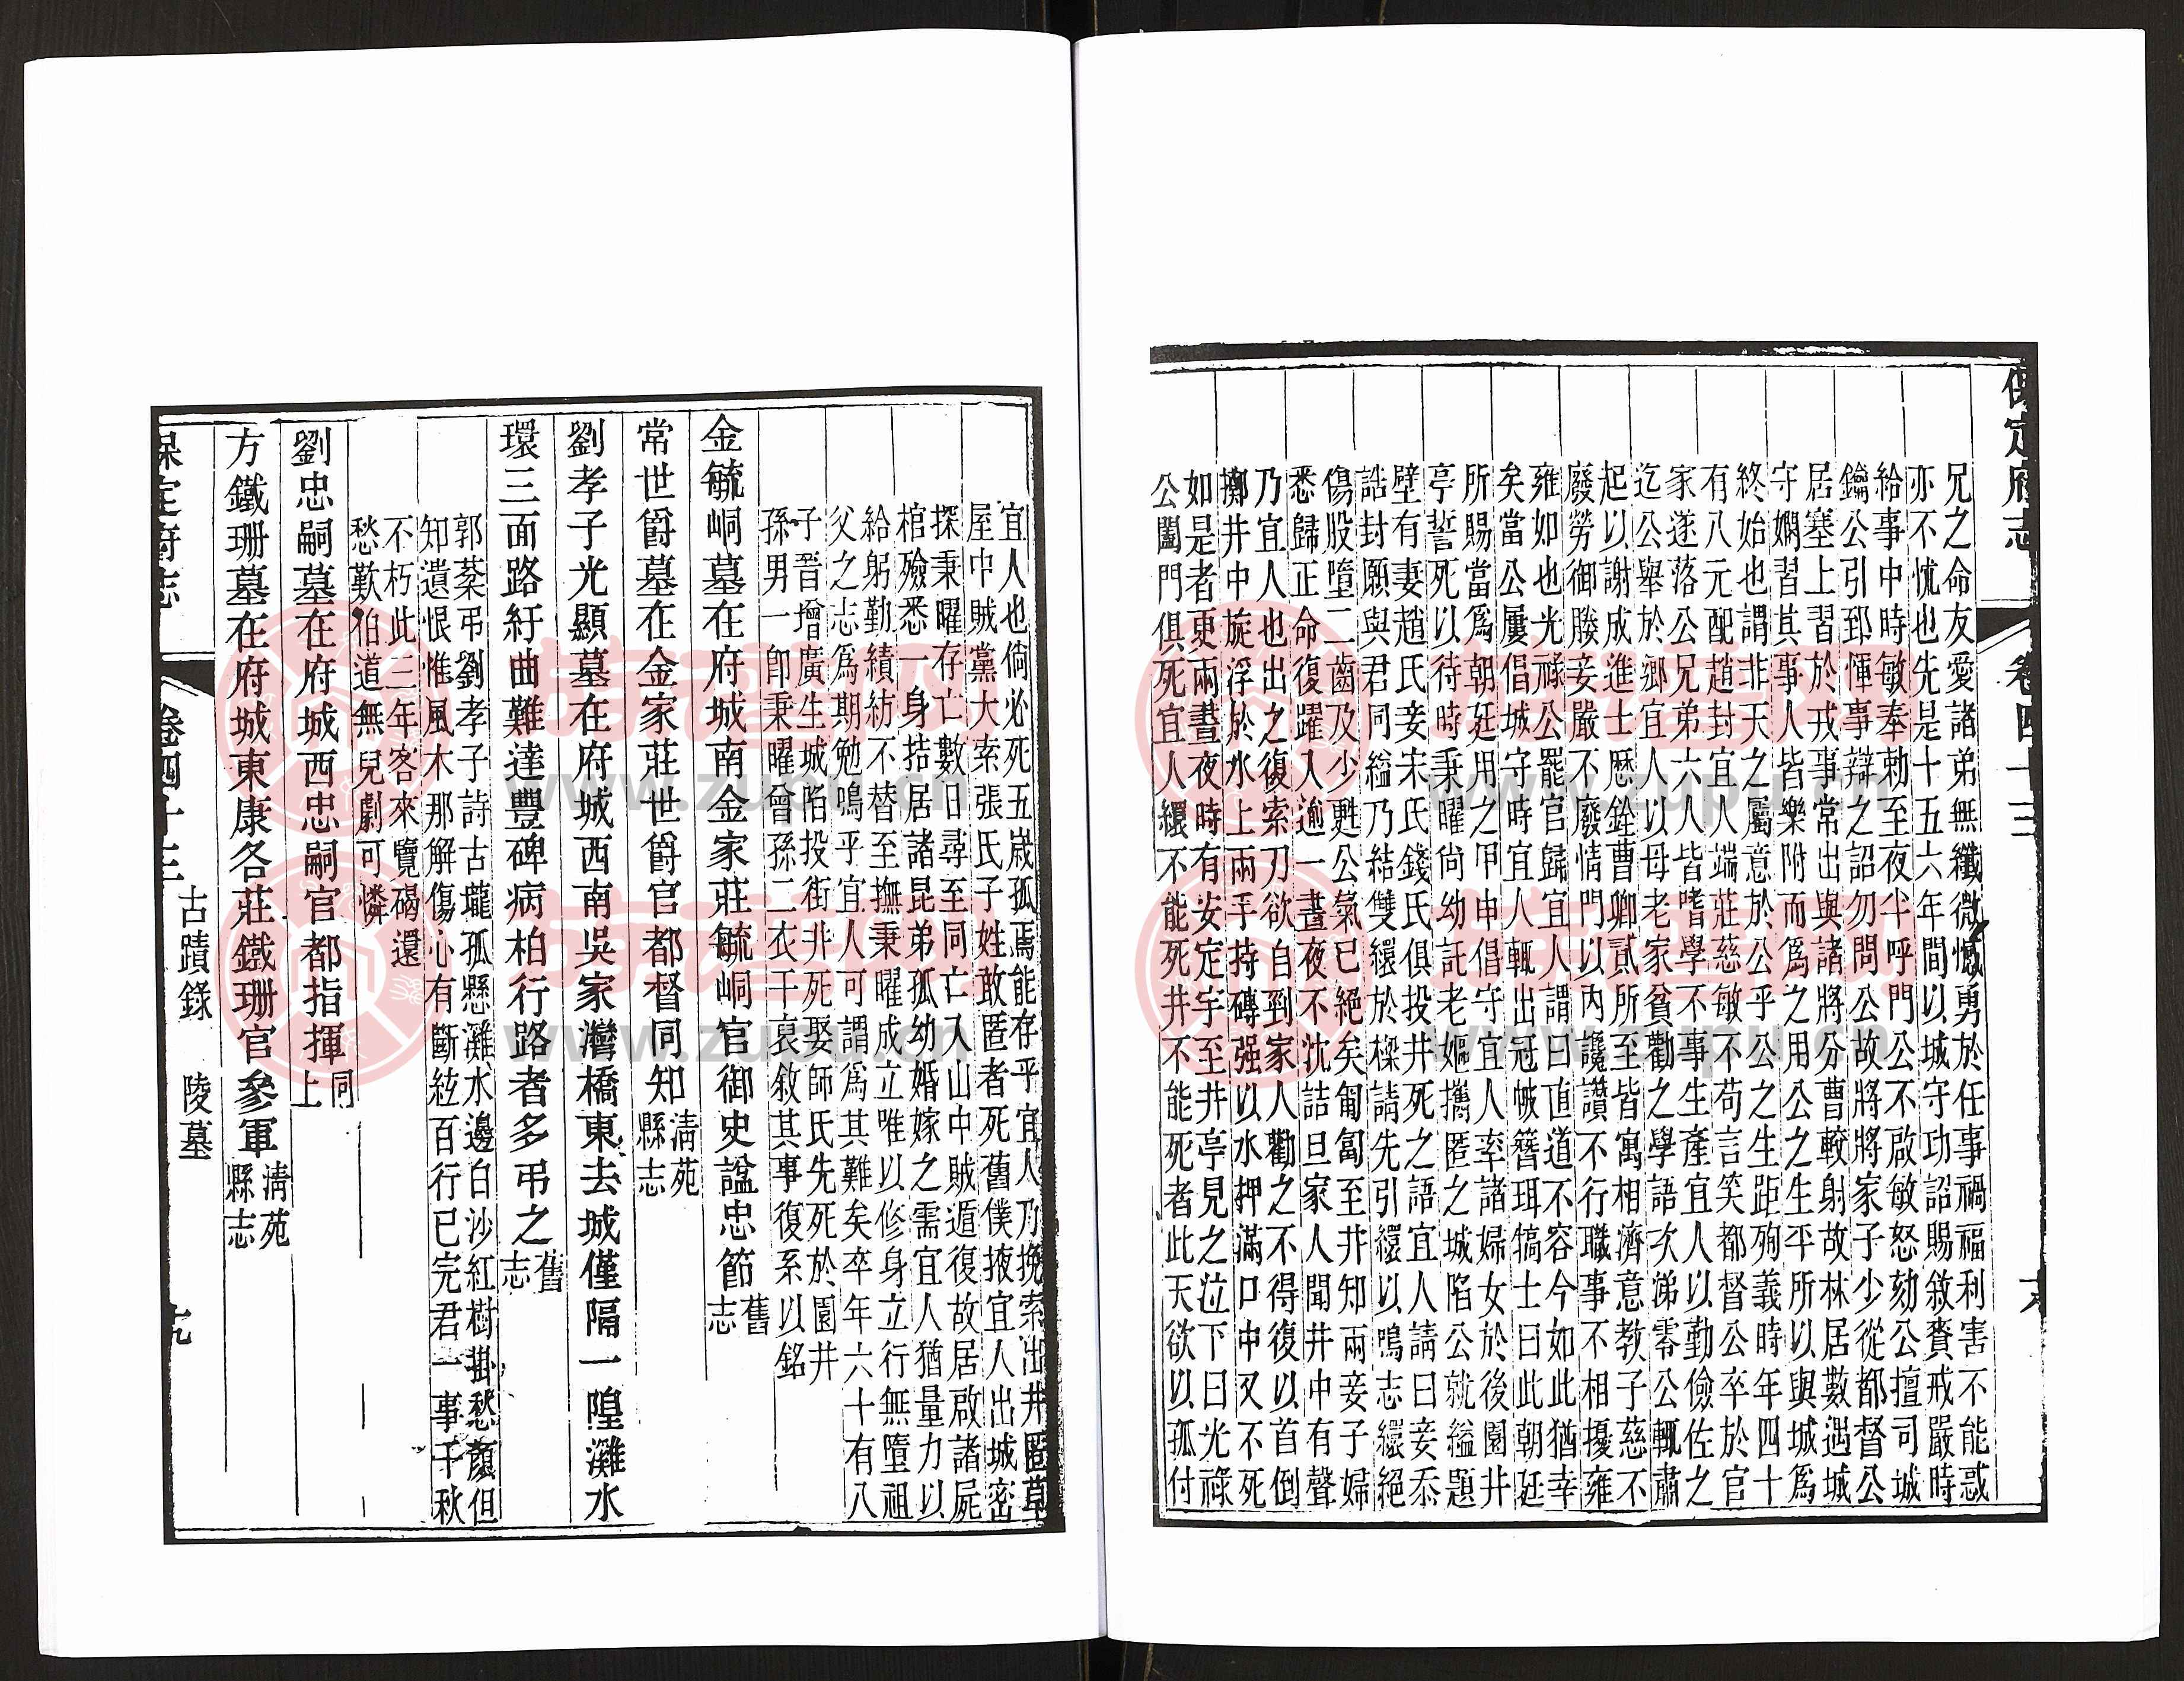 保定府志
卷四十三
兄之命友愛諸弟無纖微憾勇於任事禍福利害不能惑
亦不忧也先是十五六年間以城守功詔賜敘賚戒嚴時
給事中時敏奉勅至夜半呼門公不啟敏怒劾公擅司城
鑰公引郅惲事辯之詔勿問公故將將家子少從都督公
居塞上習於戎事常出與諸將分曹較射故林居數遇城
守嫻習其事人皆樂附而爲之用公之生平所以與城爲
終始也謂非天之屬意於公乎公之生距殉義時年四十
有八元配趙封宜人端莊慈敏不苟言笑都督公卒於官
家遂落公兄弟六人皆嗜學不事生產宜人以勤儉佐之
迄公舉於鄉宜人以母老家貧勸之學語次涕零公輒肅
起以謝成進士歷銓曹卿貳所至皆寓相濟意教子慈不
廢勞御媵妾嚴不廢情門以內讒讚不行職事不相擾雍
雍如也光祿公罷官歸宜人謂曰直道不容今如此猶幸
矣當公屢倡城守時宜人輒出冠帔簪珥犒士曰此朝廷
所賜當爲朝廷用之甲申倡守宜人率諸婦女於後園井
亭誓死以待時秉曜尙幼託老嫗攜匿之城陷公就縊題
壁有妻趙氏妾宋氏錢氏俱投井死之語宜人請曰妾忝
誥封願與君同縊乃結雙繯於樑請先引繯以鳴志繯絕
傷股墮二齒及少甦公氣已絕矣匍匐至井知兩妾子婦
悉歸正命復躍入逾一晝夜不沈詰旦家人聞井中有聲
乃宜人也出之復索刀欲自到家人勸之不得復以首倒
擲井中旋浮於水上兩手持磚强以水押滿口中又不死
如是者更兩晝夜時有安定宇至井亭見之泣下曰光祿
公闔門俱死宜人繯不能死井不能死者此天欲以孤付
宜人也倘必死五歲孤焉能存乎宜人乃挽索出井匿草
屋中賊黨大索張氏子姓敢匿者死舊僕掖宜人出城密
探秉曜存亡數日尋至同亡入山中賊遁復故居啟諸屍
棺殮悉一身拮居諸昆弟孤幼婚嫁之需宜人猶量力以
給躬勤績紡不替至撫秉曜成立唯以修身立行無墮祖
父之志爲期勉嗚乎宜人可謂爲其難矣卒年六十有八
子晉增廣生城陷投街井死娶師氏先死於園井
孫男一卽秉曜曾孫二衣干哀敘其事復系以銘
金毓峒墓在府城南金家莊毓峒官御史諡忠節舊志
常世爵墓在金家莊世爵官都督同知清苑縣志
劉孝子光顯墓在府城西南吳家灣橋東去城僅隔一隍灘水
環三面路紆曲難達豐碑病柏行路者多弔之舊志
郭棻弔劉孝子詩古壠孤懸灘水邊白沙紅樹掛愁顏但
知遺恨惟風木那解傷心有斷絃百行已完君一事千秋
不朽此三年客來覽碣還
愁歎伯道無兒劇可憐
劉忠嗣墓在府城西忠嗣官都指揮同上
方鐵珊墓在府城東康各莊鐵珊官參軍清苑縣志
保定府志
卷四十三
古蹟錄
陵墓